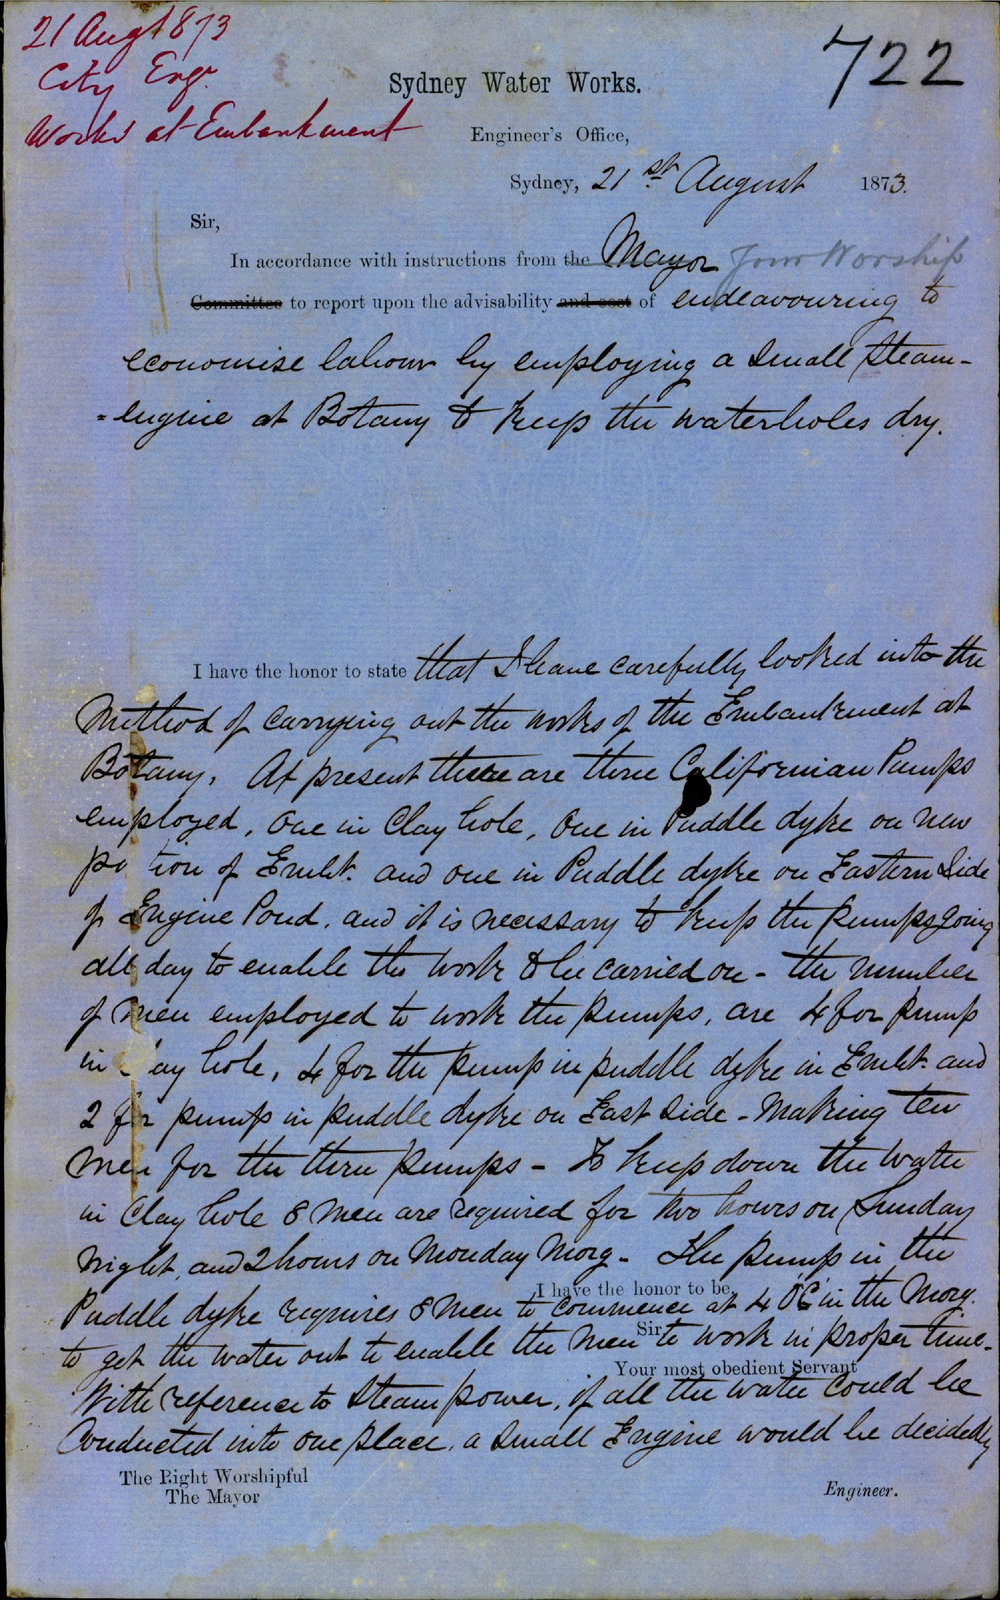 21 Augt 1873
City Engr.
Works at Embankment
722
Sydney Water Works.
Engineer's Office,
Sydney, 21st August 1873.
Sir,
In accordance with instructions from the Mayor Your Worship
Committee to report upon the advisability and cost of endeavouring to
economise labour by employing a small steam-
=engine at Botany to keep the waterholes dry.
I have the honor to state that I have carefully looked into the
Method of carrying out the works of the Embankment at
Botany. At present there are three Californian Pumps
employed, one in Clay hole, one in Puddle dyke on new
po tion of Embt. and one in Puddle dyke on Eastern Side
of Engine Pond, and it is necessary to keep the pumps going
all day to enable the work to be carried on - the number
of men employed to work the pumps, are 4 for pump
in lay hole, 4 for the pump in puddle dyke in Embt. and
2 for pump in puddle dyke on East Side - Making ten
men for the three pumps - To keep down the water
in Clay hole 8 men are required for two hours on Sunday
night, and 2 hours on Monday Morg - The pump in the
I have the honor to be,
Puddle dyke requires 8 men to commence at 4 OC in the Morg.
Sir
to get the water out to enable the men to work in proper time.
Your most obedient Servant
With reference to Steam power, if all the water could be
Conducted into one place, a small Engine would be decidedly
The Right Worshipful
The Mayor
Engineer.